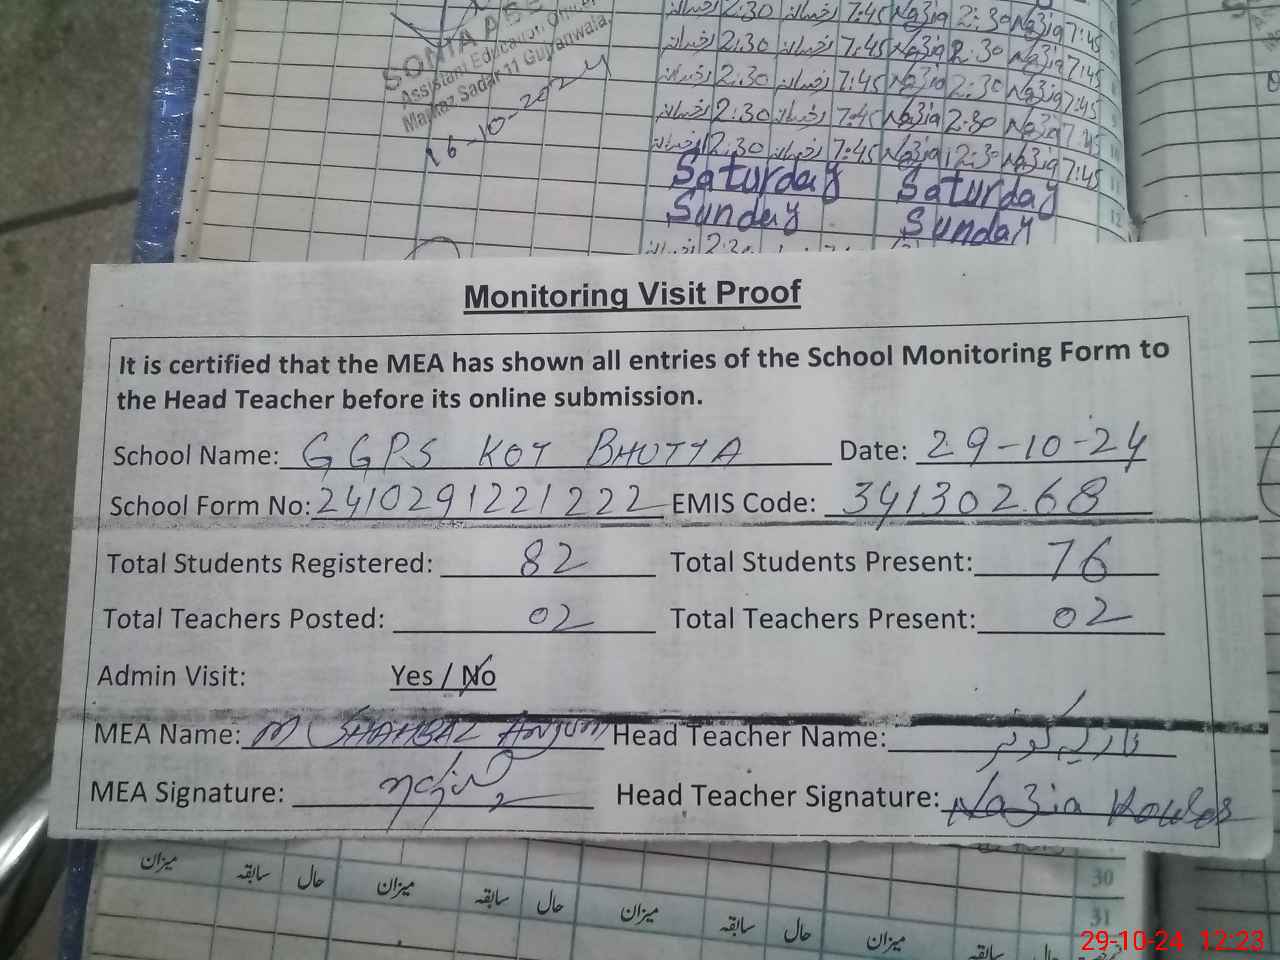 SONIA
Assistant Education Officer
Markaz Sadar 11 Gujranwala
16-10-2024
2:30 7:45 Nazia 2:30 Nazia 7:45
2:30 7:45 Nazia 2:30 Nazia 7:45
2:30 7:45 Nazia 2:30 Nazia 7:45
2:30 7:45 Nazia 2:30 Nazia 7:45
2:30 7:45 Nazia 2:30 Nazia 7:45
Saturday Saturday
Sunday Sunday
Monitoring Visit Proof
It is certified that the MEA has shown all entries of the School Monitoring Form to
the Head Teacher before its online submission.
School Name: GGPS KOT BHUTTA Date: 29-10-24
School Form No: 2410291221222 EMIS Code: 34130268
Total Students Registered: 82 Total Students Present: 76
Total Teachers Posted: 02 Total Teachers Present: 02
Admin Visit: Yes / No
MEA Name: M SHAHBAZ ANJUM Head Teacher Name: نازیہ کوثر
MEA Signature: Head Teacher Signature: Nazia Kousar
30
میزان سابقہ حال میزان سابقہ حال میزان سابقہ حال میزان سابقہ حال
31
29-10-24 12:23